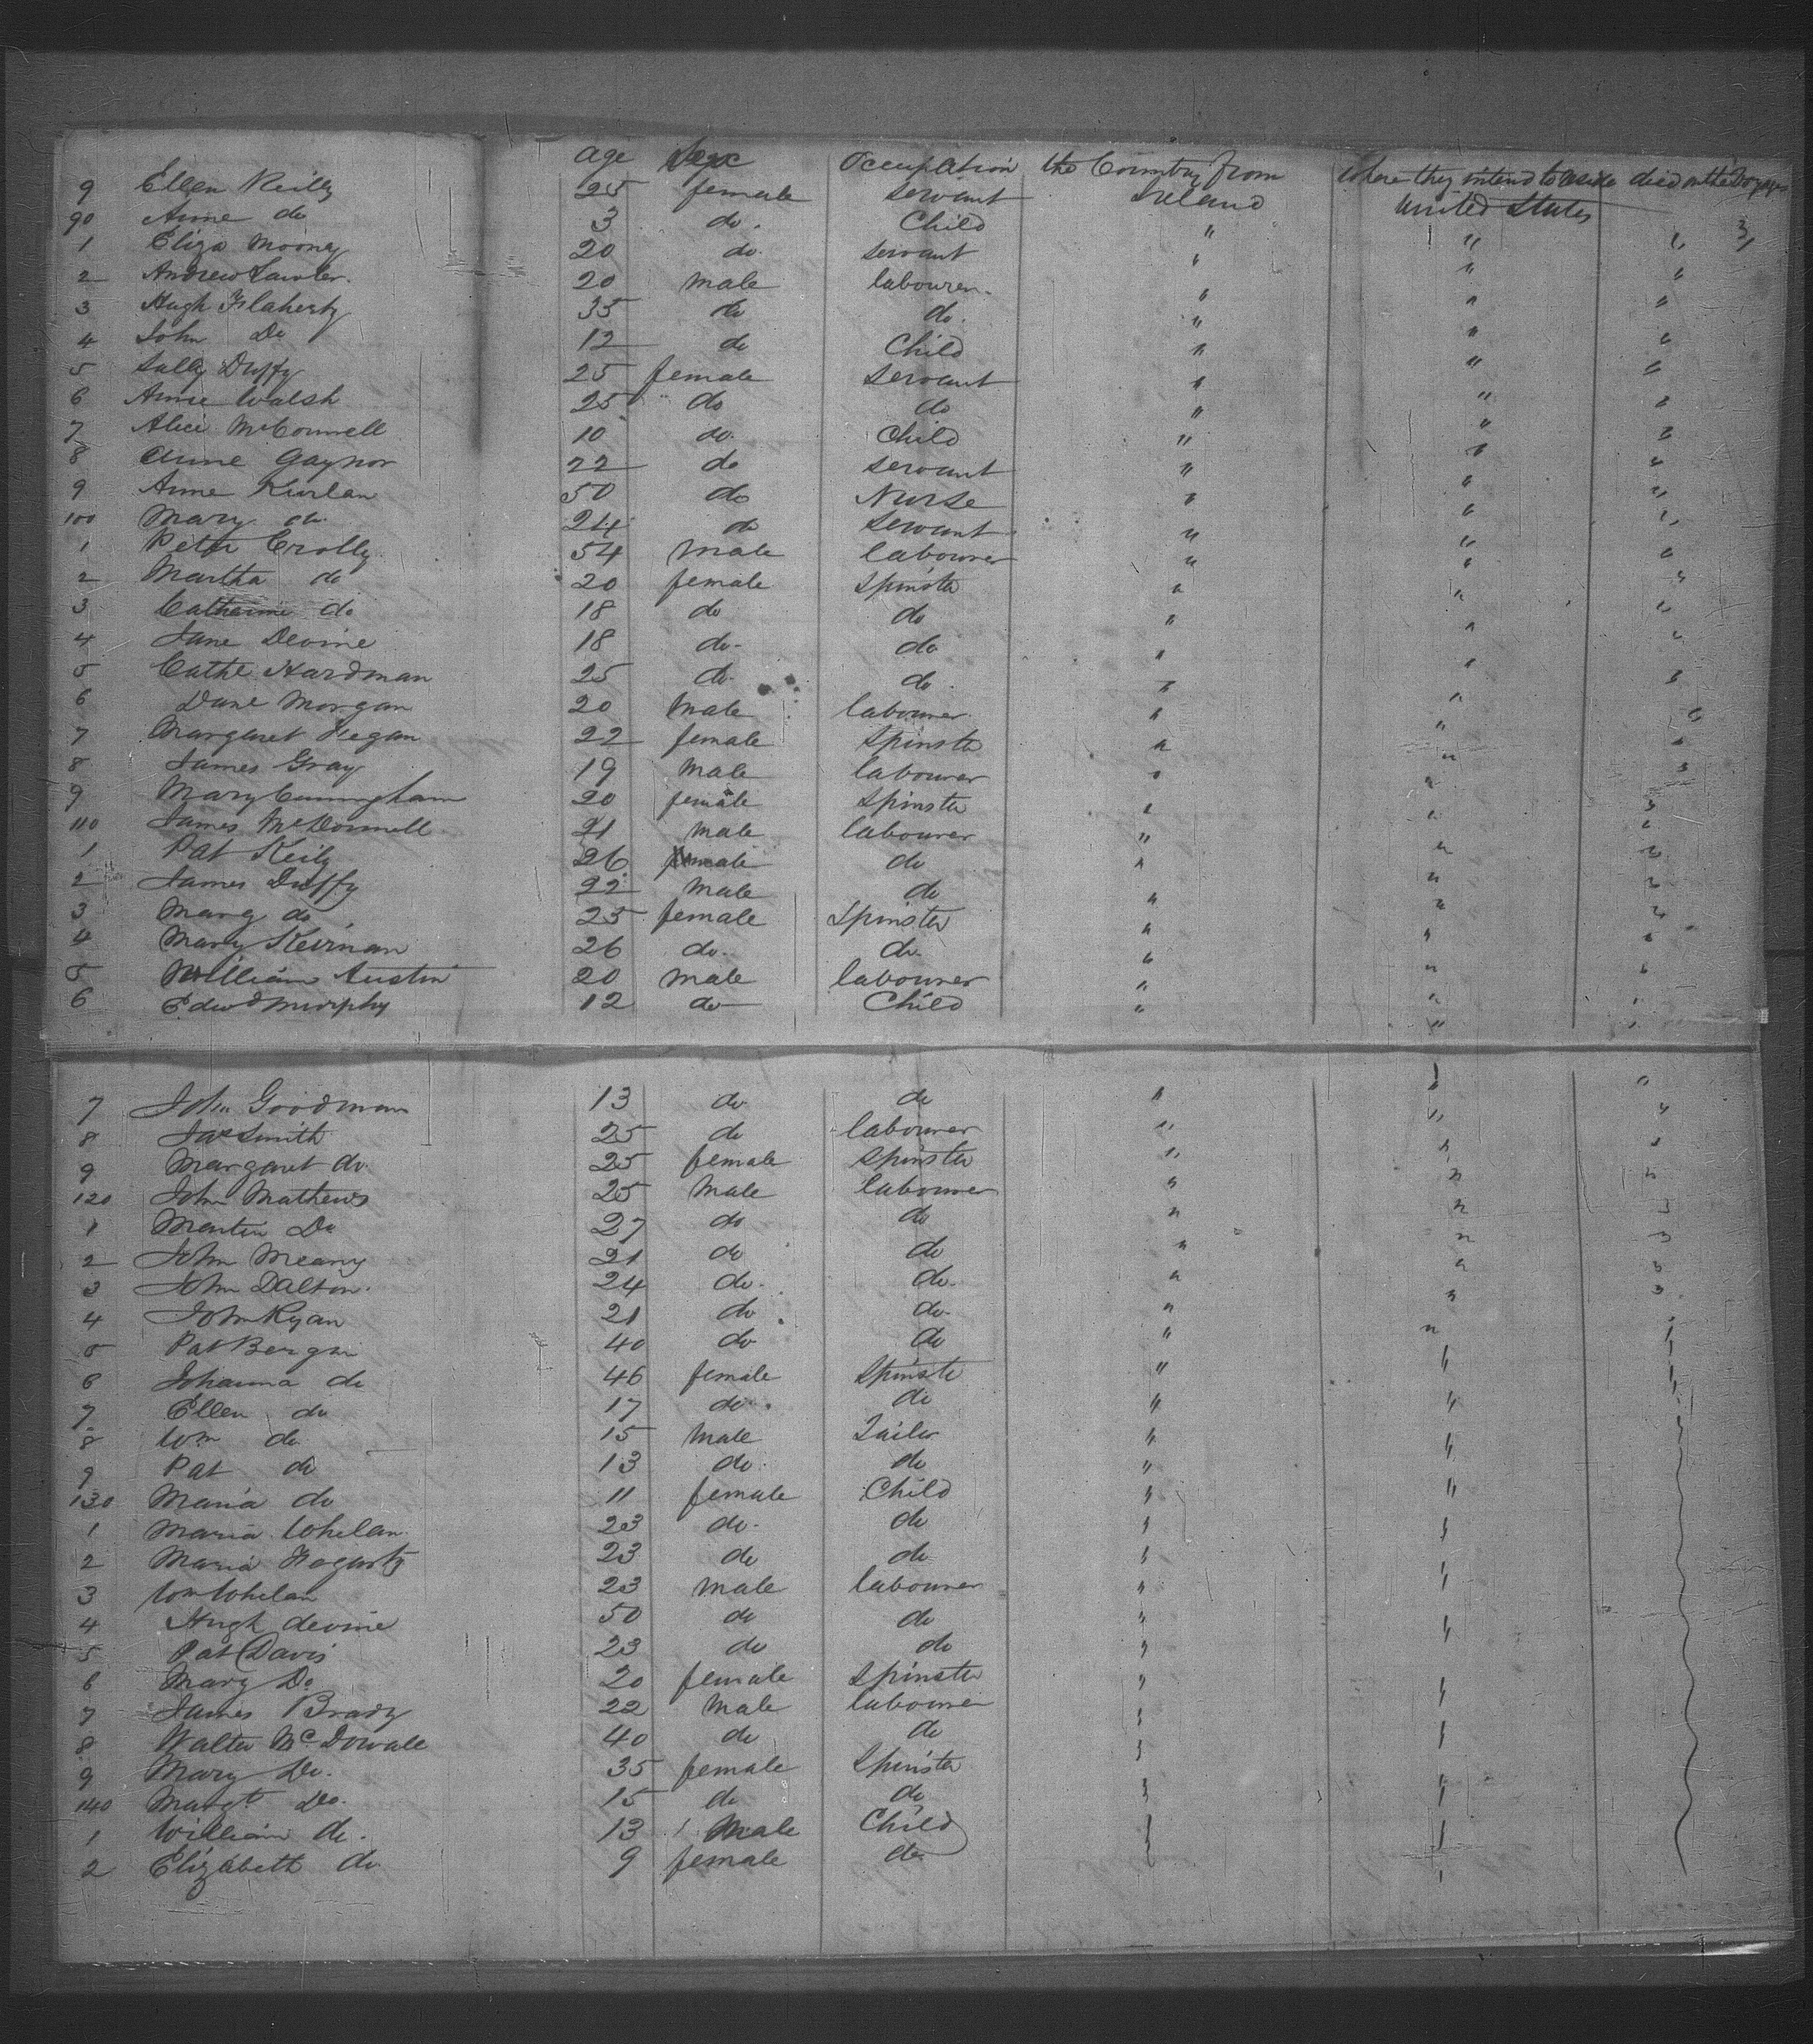 age Sex Occupation the Country from Where they intend to reside died on the Voyage
9 Ellen Reilly 25 female servant Ireland United States
90 Anne do 3 do. Child " " "
1 Eliza Mooney 20 do. servant " " "
2 Andrew Lawler. 20 male labourer. " " "
3 Hugh Flaherty 35 do do. " " "
4 John Do 12 do Child " " "
5 Sally Duffy 25 female servant " " "
6 Anne Walsh 25 do do " " "
7 Alice McConnell 10 do. Child " " "
8 Anne Gaynor 22 do servant " " "
9 Anne Kurlan 50 do Nurse " " "
100 Mary do. 24 do servant " " "
1 Peter Crolly 54 male labourer " " "
2 Martha do 20 female Spinster " " "
3 Catherine do 18 do do " " "
4 Jane Devine 18 do- do " " "
5 Cathe Hardman 25 do. do. " " "
6 Dane Morgan 20 male labourer " " "
7 Margaret Fegan 22 female Spinster " " "
8 James Gray 19 male labourer " " "
9 Mary Cunningham 20 female Spinster " " "
110 James McDonnell 21 male labourer " " "
1 Pat Keily 26 male do " " "
2 James Duffy 22 male do " " "
3 Marg do 25 female Spinster " " "
4 Mary Keirnan 26 do. do. " " "
5 William Austin 20 male labourer " " "
6 Edwd Murphy 12 do Child " " "
7 John Goodman 13 do do " " "
8 Jas Smith 25 do labourer " " "
9 Margaret do. 25 female Spinster " " "
120 John Mathews 25 male labourer " " "
1 Martin Do 27 do do " " "
2 John Meany 21 do do " " "
3 John Dalton. 24 do. do. " " "
4 John Ryan 21 do do. " " "
5 Pat Bergin 40 do do " " "
6 Johanna do 46 female Spinster " " "
7 Ellen do 17 do. do " "
8 Wm do 15 male Tailor " "
9 Pat do 13 do. do " "
130 Maria do 11 female Child " "
1 Maria Whelan. 23 do. do " "
2 Maria Fogarty 23 do do " "
3 Wm Whelan 23 male labourer " "
4 Hugh devine 50 do do " "
5 Pat Davis 23 do do "
6 Mary Do 20 female Spinster " "
7 James Brady 22 male labourer " "
8 Walter McDowall 40 do do "
9 Mary Do. 35 female Spinster " "
140 Margt Do. 15 do do " "
1 William do. 13 Male Child " "
2 Elizabeth do. 9 female do " "